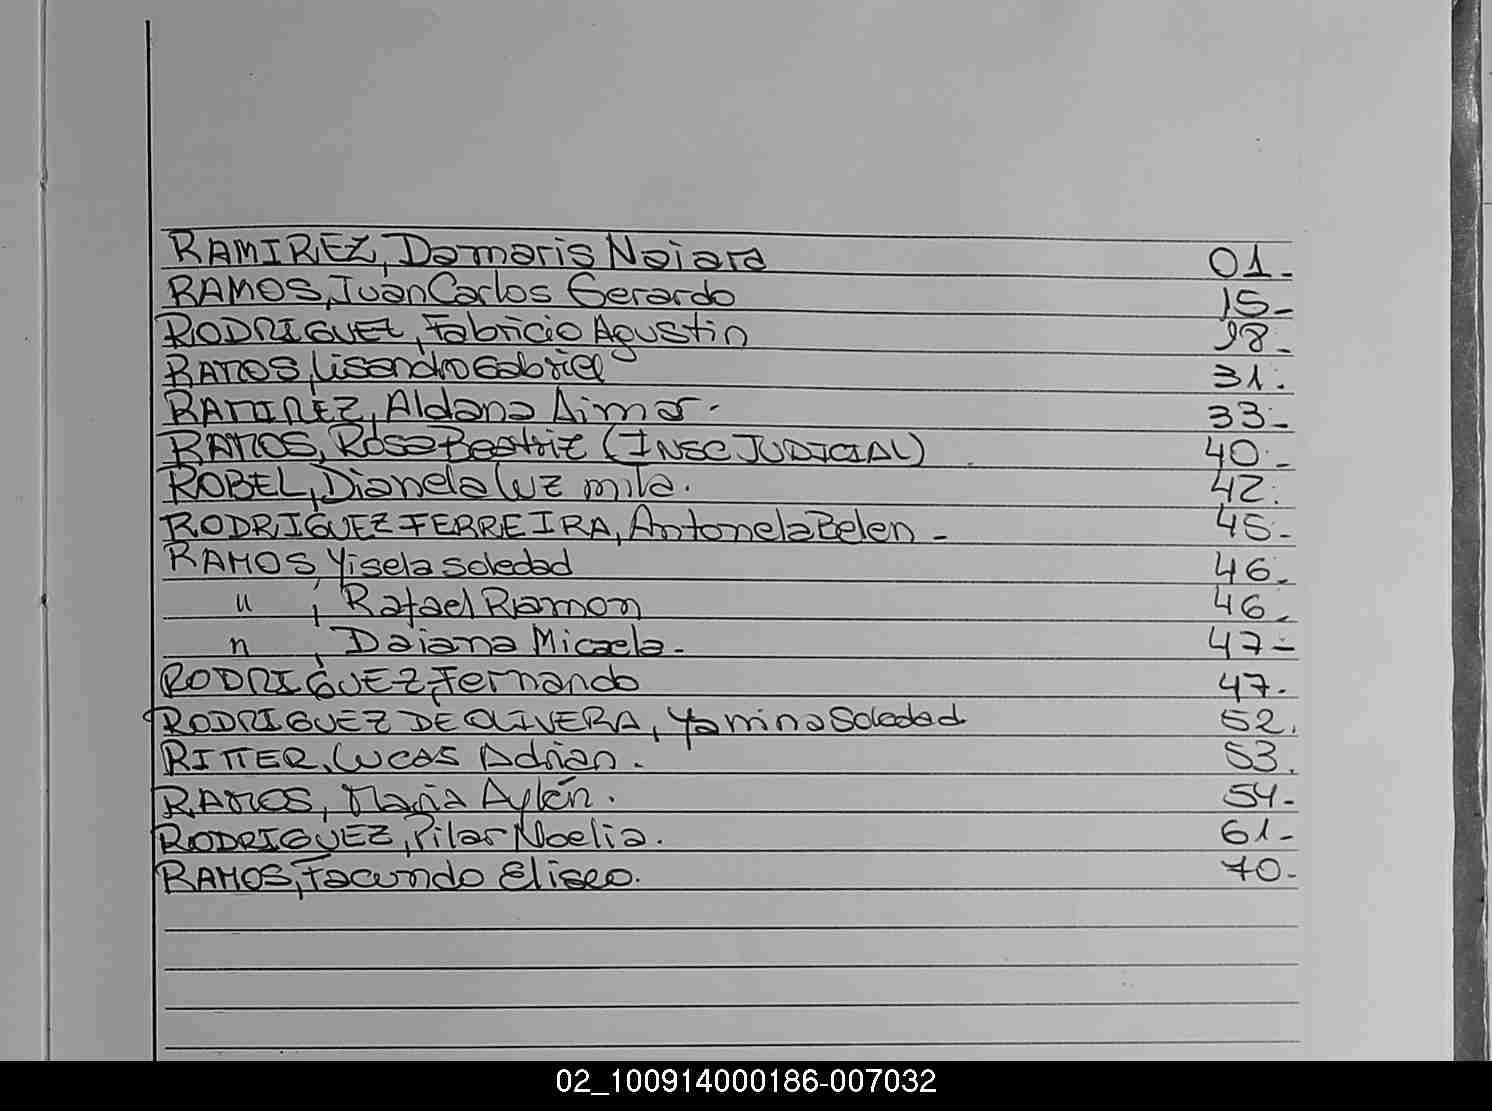 RAMIREZ, Damaris Naiara 01-
RAMOS, Juan Carlos Gerardo 15-
RODRIGUEZ, Fabricio Agustin 18-
RAMOS, Lisandro Gabriel 31.
RAMIREZ, Aldana Aimar. 33-
RAMOS, Rosa Beatriz (INSC JUDICIAL) 40-
ROBEL, Dianela Luz mila. 42.
RODRIGUEZ FERREIRA, Antonela Belen - 45-
RAMOS, Yisela Soledad 46-
" , Rafael Ramon 46-
" , Daiana Micaela. 47-
RODRIGUEZ, Fernando 47.
RODRIGUEZ DE OLIVERA, Yamina Soledad 52.
RITTER, Lucas Adrian. 53.
RAMOS, Maria Aylén. 54-
RODRIGUEZ, Pilar Noelia. 61-
RAMOS, Facundo Eliseo. 70-
02_100914000186-007032